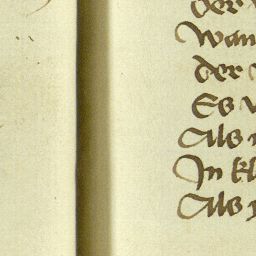 der
Wan
der
Es
Als
In kl
Als